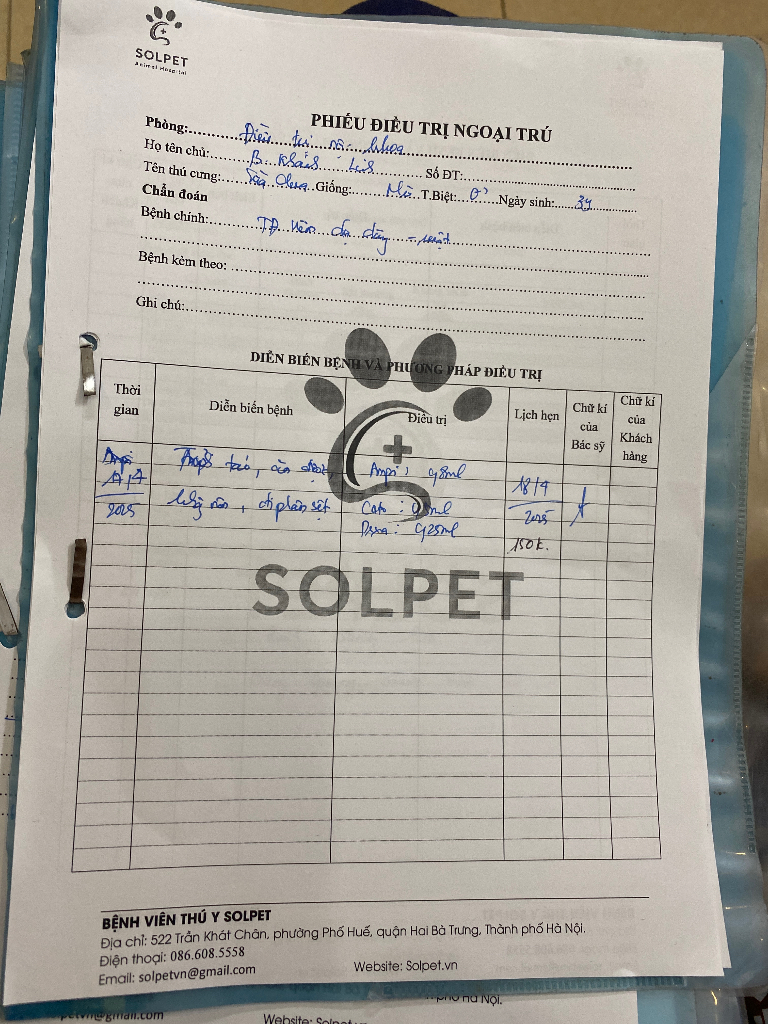 SOLPET
Animal Hospital
PHIẾU ĐIỀU TRỊ NGOẠI TRÚ
Phòng: Điều trị nội khoa
Họ tên chủ: B. Khánh Linh Số ĐT:
Tên thú cưng: Giống: Mèo T.Biệt: ♂ Ngày sinh: 3y
Chẩn đoán
Bệnh chính: TD. viêm dạ dày - ruột
Bệnh kèm theo:
Ghi chú:
DIỄN BIẾN BỆNH VÀ PHƯƠNG PHÁP ĐIỀU TRỊ
Thời gian Diễn biến bệnh Điều trị Lịch hẹn Chữ kí của Bác sỹ Chữ kí của Khách hàng
17/4 táo, ăn được Ampi: 0,8ml 18/4
2025 không nôn, đi phân sệt Cato: ml 2025
: 0,25ml
150k.
SOLPET
BỆNH VIỆN THÚ Y SOLPET
Địa chỉ: 522 Trần Khát Chân, phường Phố Huế, quận Hai Bà Trưng, Thành phố Hà Nội.
Điện thoại: 086.608.5558
Email: solpetvn@gmail.com Website: Solpet.vn
petvn@gmail.com Website: Solpet
phố Hà Nội.